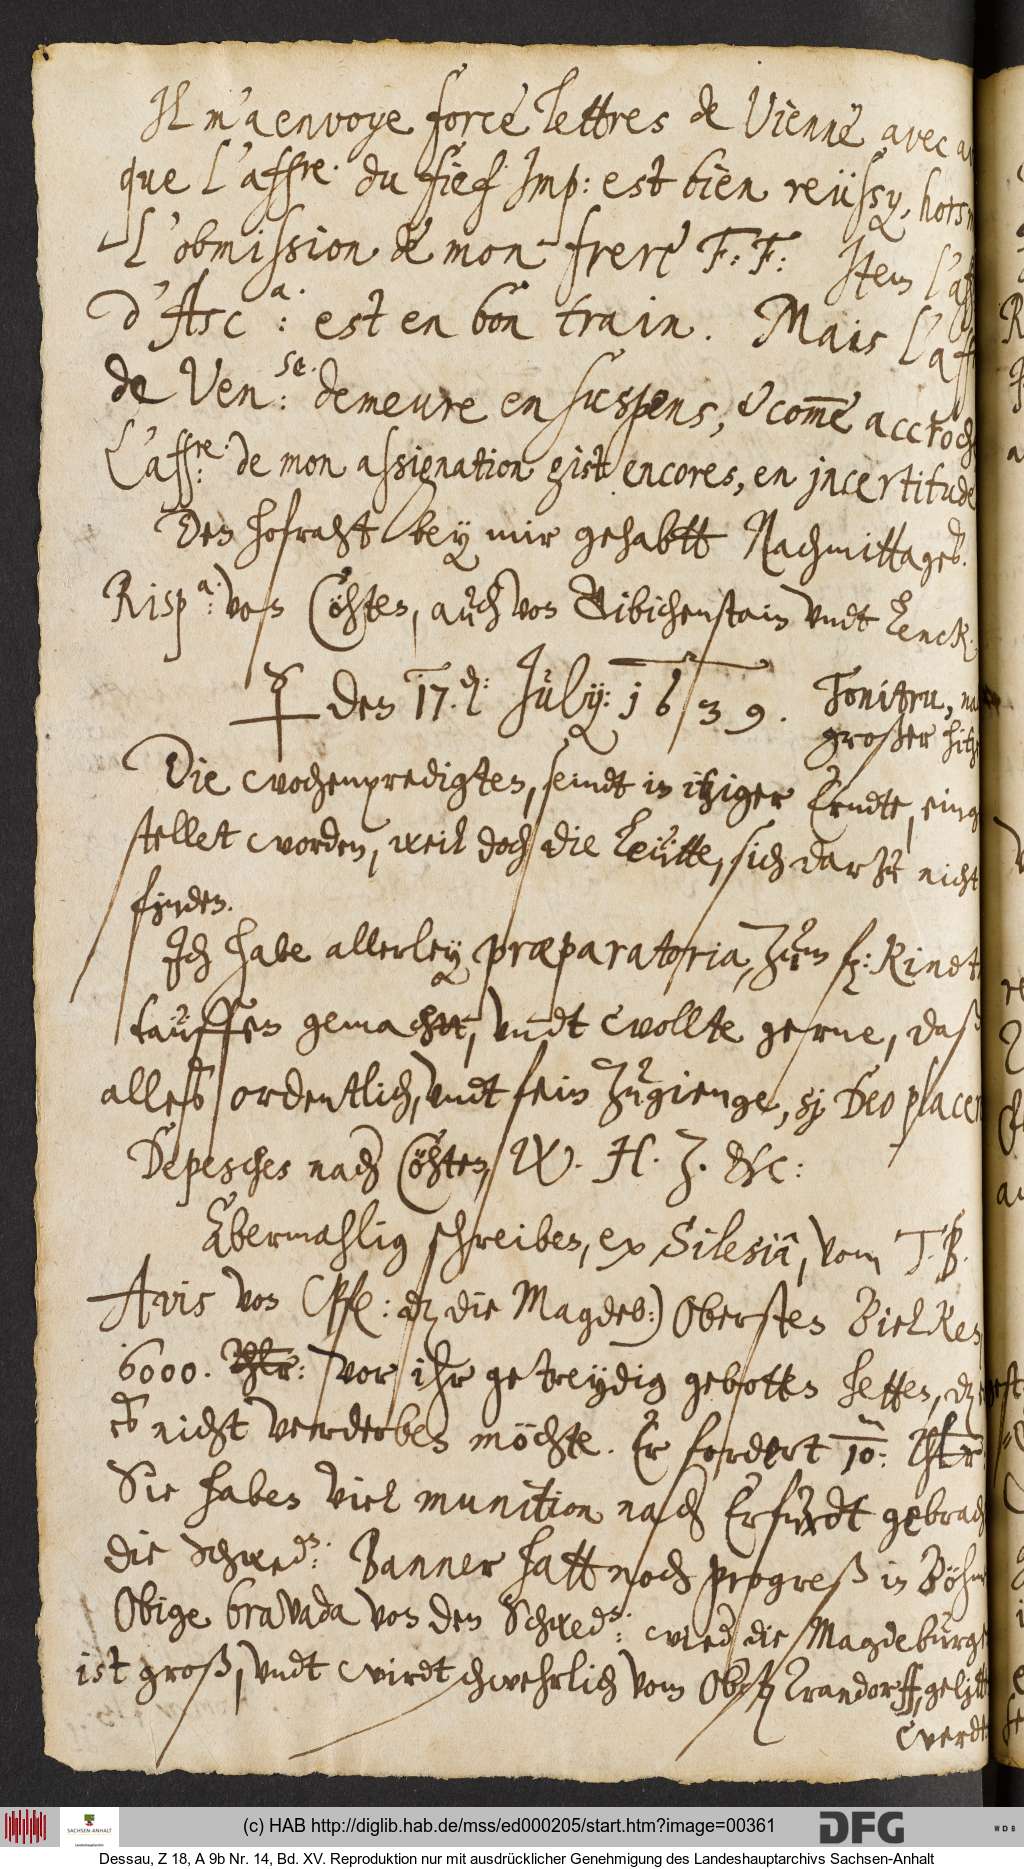 Il m'a envoye force lettres de Vienne avec a
que l'affre. du fief Imp: est bien reüssy, horsm
L'obmission de mon frere F: F: Item l'aff
d'Asc:a. est en bon train. Mais l'aff
de Ven:se. demeure en suspens, & com̄e accroch
L'affre: de mon assignation gist encores, en incertitude
Den hofraht bey mir gehabtt Nachmittages.
Risp:a. von Cöhten, auch von Bibichenstain vndt
den 17.d: July: 1639. Tonitru, na
großer hitz
Die wochenpredigten, seindt in itziger Erndte, einge
stellet worden, weil doch die Leütte, sich darzu nicht
finden.
Ich habe allerley præparatoria, zum f: Kindt
tauffen gemachtt, vndt wollte gerne, daß
alleß ordentlich, vndt fein zugienge, si Deo placer
Depesches nach Cöhten, W. H. Z. &c:
Abermahlig schreiben, ex Silesiâ, vom T. B.
Avis von Pf: dz die Magdeb:) Obersten Bielken
6000. Thlr: vor ihr getreydig gebotten hetten, dz
es nicht verderben möchte. Er fordert 10:m Thlr
Sie haben viel munition nach Erfurdt gebrach
die Schweds: Banner hatt noch progreß in Böhm
Obige bravada von den Schweds: wied die Magdeburge
ist groß, vndt wirdt schwehrlich vom Obr: Trandorff, gelitt
werdt
(c) HAB http://diglib.hab.de/mss/ed000205/start.htm?image=00361
SACHSEN-ANHALT
DFG
WDB
Dessau, Z 18, A 9b Nr. 14, Bd. XV. Reproduktion nur mit ausdrücklicher Genehmigung des Landeshauptarchivs Sachsen-Anhalt